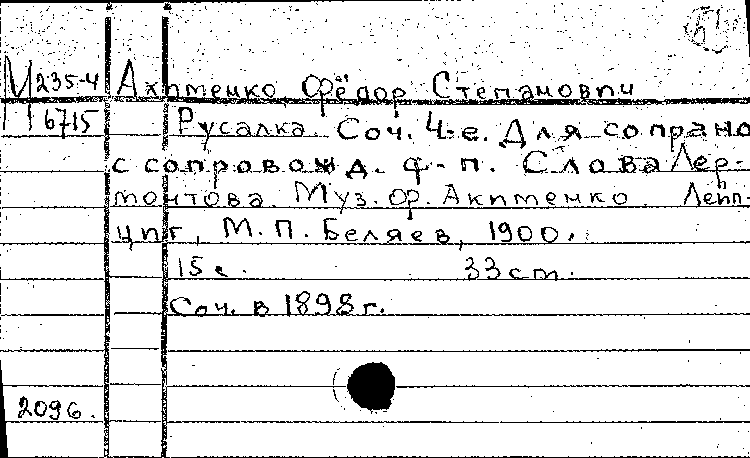 М 235-4 Акименко, Фёдор Степанович
6715 Русалка. Соч. 4-е. Для сопрано
с сопровожд. ф-п. Слова Лер-
монтова. Муз. Ф. Акименко. Лейп-
циг, М. П. Беляев, 1900.
15 с. 33 cm.
Соч. в 1898 г.
2096.